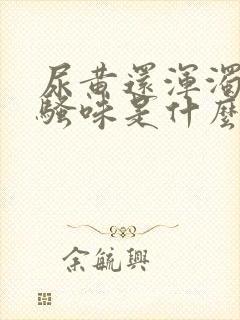 尿黄還渾濁
騷味是什麼
余毓興